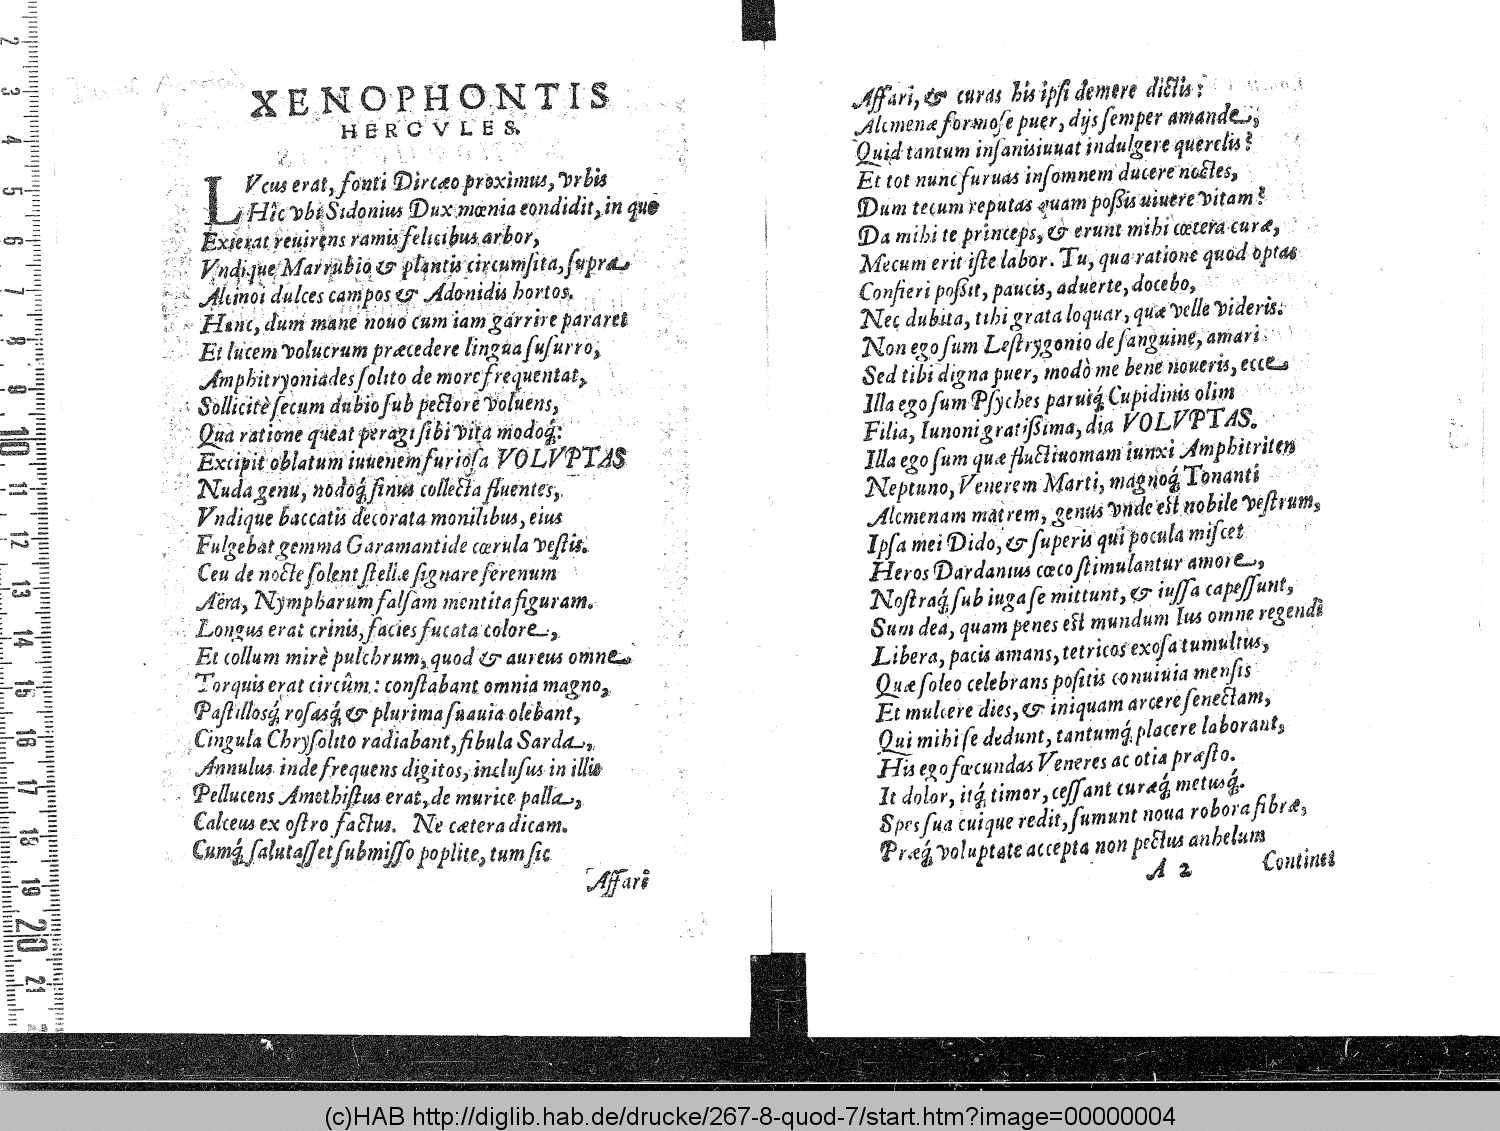 XENOPHONTIS
HERCVLES.
LVcus erat, fonti Dircæo proximus, vrbis
Hîc vbi Sidonius Dux mœnia condidit, in quo
Exierat reuirens ramis felicibus arbor,
Vndique Marrubio & plantis circumsita, supra
Alcinoi dulces campos & Adonidis hortos.
Hunc, dum mane nouo cum iam garrire pararet
Et lucem volucrum præcedere lingua susurro,
Amphitryoniades solito de more frequentat,
Sollicitè secum dubio sub pectore voluens,
Qua ratione queat peragi sibi vita modoq́;:
Excipit oblatum iuuenem furiosa VOLVPTAS
Nuda genu, nodoq́; sinus collecta fluentes,
Vndique baccatis decorata monilibus, eius
Fulgebat gemma Garamantide cœrula vestis.
Ceu de nocte solent stellæ signare serenum
Aëra, Nympharum falsam mentita figuram.
Longus erat crinis, facies fucata colore,
Et collum mirè pulchrum, quod & aureus omne
Torquis erat circûm: constabant omnia magno,
Pastillosq́; rosasq́; & plurima suauia olebant,
Cingula Chrysolito radiabant, fibula Sarda,
Annulus inde frequens digitos, inclusus in illis
Pellucens Amethistus erat, de murice palla,
Calceus ex ostro factus. Ne cætera dicam.
Cumq́; salutasset submisso poplite, tum sic
Affari
Affari, & curas his ipsi demere dictis:
Alcmenæ formose puer, dijs semper amande,
Quid tantum insanis iuuat indulgere querelis?
Et tot nunc furuas insomnem ducere noctes,
Dum tecum reputas quam possis uiuere vitam?
Da mihi te princeps, & erunt mihi cœtera curæ,
Mecum erit iste labor. Tu, qua ratione quod optas
Confieri possit, paucis, aduerte, docebo,
Nec dubita, tibi grata loquar, quæ velle videris.
Non ego sum Lestrygonio de sanguine, amari
Sed tibi digna puer, modò me bene noueris, ecce
Illa ego sum Psyches paruiq́; Cupidinis olim
Filia, Iunoni gratissima, dia VOLVPTAS.
Illa ego sum quæ fluctiuomam iunxi Amphitriten
Neptuno, Venerem Marti, magnoq́; Tonanti
Alcmenam matrem, genus vnde est nobile vestrum,
Ipsa mei Dido, & superis qui pocula miscet
Heros Dardanius cœco stimulantur amore,
Nostraq́; sub iuga se mittunt, & iussa capessunt,
Sum dea, quam penes est mundum Ius omne regendi
Libera, pacis amans, tetricos exosa tumultus,
Quæ soleo celebrans positis conuiuia mensis
Et mulcere dies, & iniquam arcere senectam,
Qui mihi se dedunt, tantumq́; placere laborant,
His ego fœcundas Veneres ac otia præsto.
It dolor, itq́; timor, cessant curæq́; metusq́;.
Spes sua cuique redit, sumunt noua robora fibræ,
Præq́; voluptate accepta non pectus anhelum
A 2 Continet
(c)HAB http://diglib.hab.de/drucke/267-8-quod-7/start.htm?image=00000004